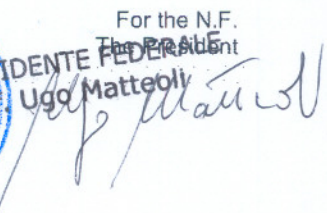 For the N.F.
The President
IDENTE FEDERALE
Ugo Matteoli